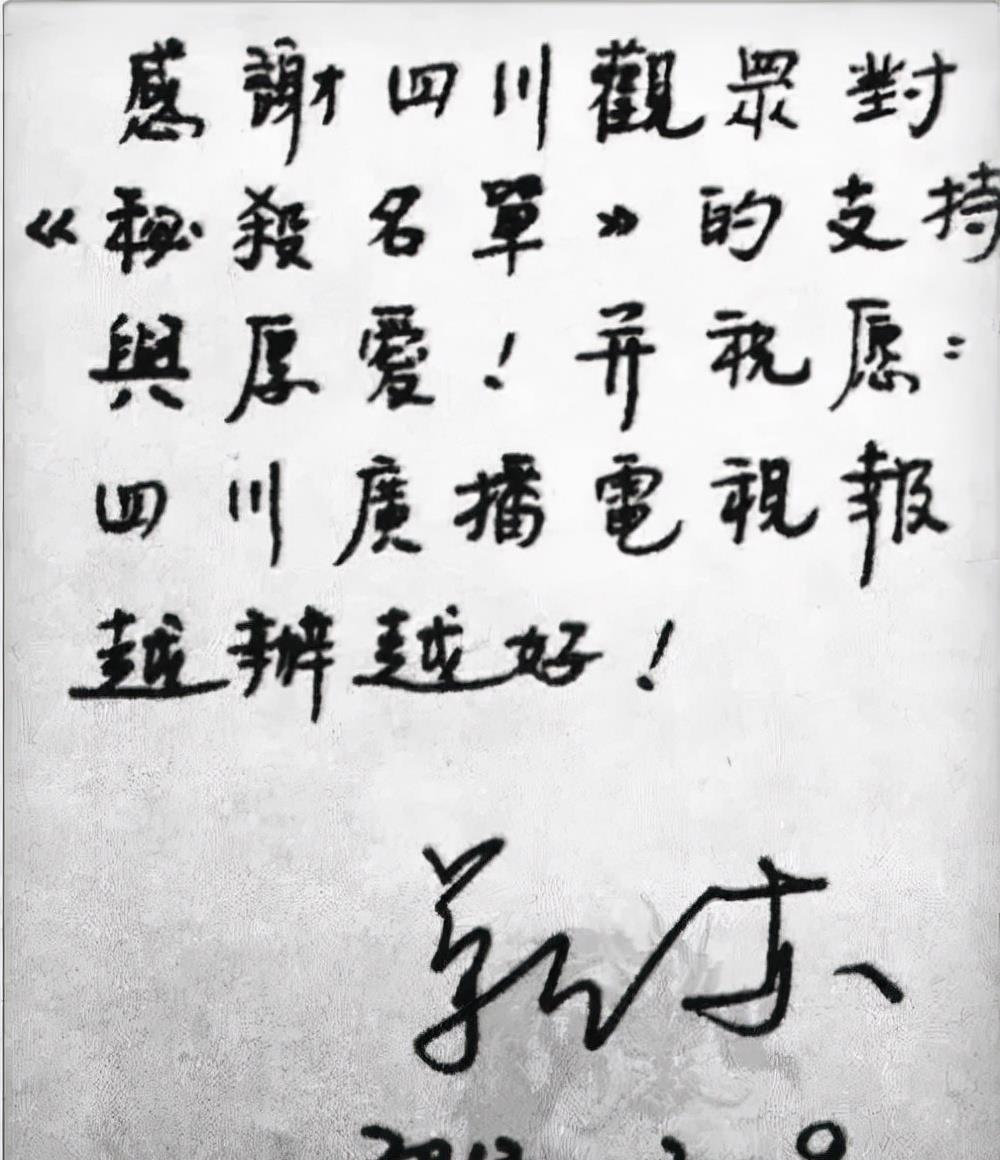 感謝四川觀眾對
《秘殺名單》的支持
與厚愛！并祝愿：
四川廣播電視報
越辦越好！